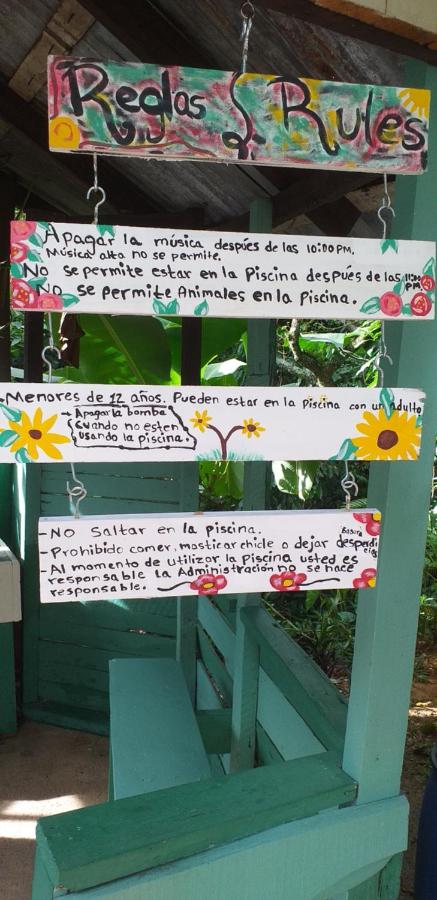 Reglas Rules
Apagar la música después de las 10:00 PM.
Música alta no se permite.
No se permite estar en la Piscina después de las 11:00 PM
No se permite Animales en la Piscina.
Menores de 12 años. Pueden estar en la Piscina con un Adulto
→ Apagar la bomba
cuando no esten
usando la piscina.
-No Saltar en la piscina.
-Prohibido comer, masticar chicle o dejar desperdicios
Basura
-Al momento de utilizar la Piscina usted es
responsable la Administración no se hace
responsable.